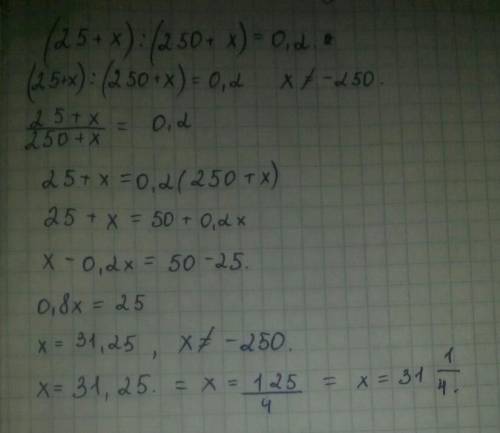 (25+x):(250+x)=0,2.
(25+x):(250+x)=0,2 x≠-250.
25+x/250+x = 0,2
25+x=0,2(250+x)
25+x=50+0,2x
x-0,2x=50-25.
0,8x=25
x=31,25, x≠-250.
x=31,25. = x=125/4 = x=31 1/4.